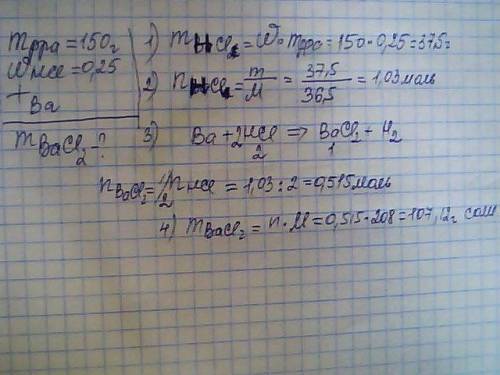 mр-ра = 150г
WHCl = 0,25
+ Ba
mBaCl2 - ?
1) mHCl = W · mр-ра = 150 · 0,25 = 37,5г
2) nHCl = m/M = 37,5/36,5 = 1,03 моль
3) Ba + 2HCl => BaCl2 + H2
2 1
nBaCl2 = 1/2 nHCl = 1,03 : 2 = 0,515 моль
4) mBaCl2 = n · M = 0,515 · 208 = 107,12г соли